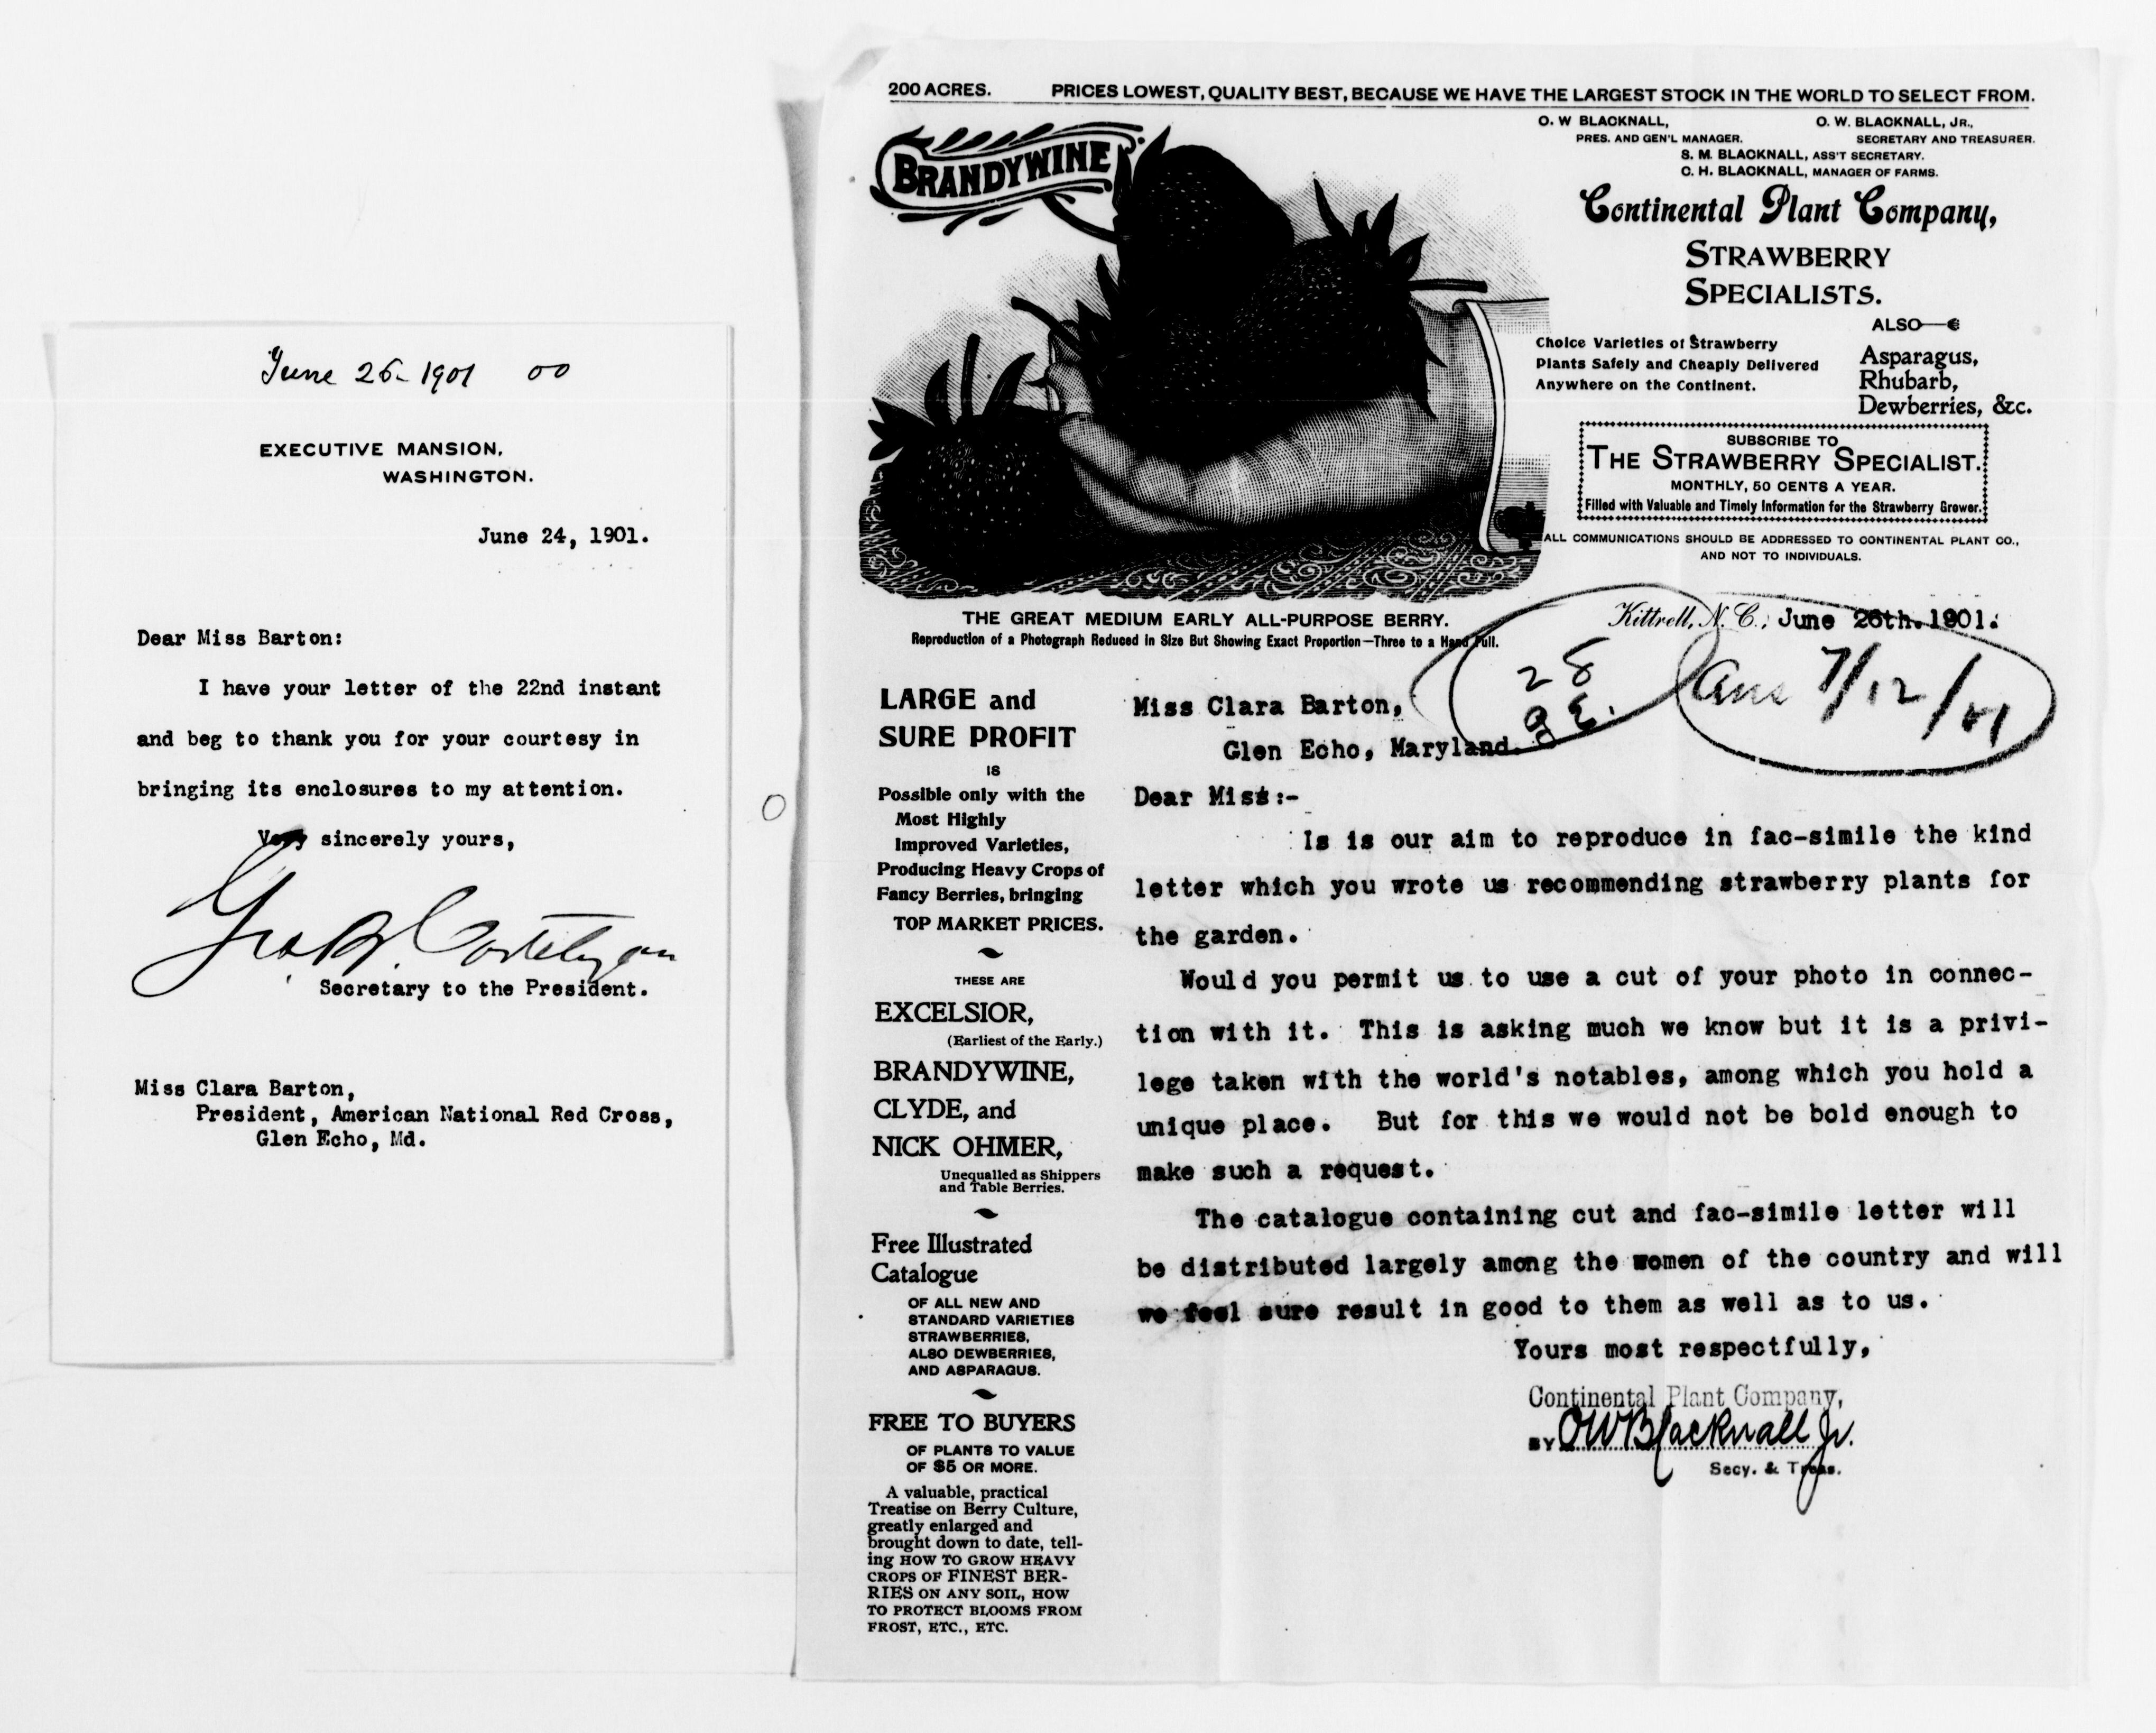 June 26- 1901 00
EXECUTIVE MANSION,
WASHINGTON.
June 24, 1901.
Dear Miss Barton:
I have your letter of the 22nd instant
and beg to thank you for your courtesy in
bringing its enclosures to my attention.
Very sincerely yours,
Geo B. Cortelyou
Secretary to the President.
Miss Clara Barton,
President, American National Red Cross,
Glen Echo, Md.
200 ACRES. PRICES LOWEST, QUALITY BEST, BECAUSE WE HAVE THE LARGEST STOCK IN THE WORLD TO SELECT FROM.
BRANDYWINE
O. W BLACKNALL, O. W. BLACKNALL, JR.,
PRES. AND GEN'L MANAGER. SECRETARY AND TREASURER.
S. M. BLACKNALL, ASS'T SECRETARY.
C. H. BLACKNALL, MANAGER OF FARMS.
Continental Plant Company,
STRAWBERRY
SPECIALISTS.
ALSO
Choice Varieties of Strawberry
Plants Safely and Cheaply Delivered
Anywhere on the Continent.
Asparagus,
Rhubarb,
Dewberries, &c.
SUBSCRIBE TO
THE STRAWBERRY SPECIALIST.
MONTHLY, 50 CENTS A YEAR.
Filled with Valuable and Timely Information for the Strawberry Grower.
ALL COMMUNICATIONS SHOULD BE ADDRESSED TO CONTINENTAL PLANT CO.,
AND NOT TO INDIVIDUALS.
THE GREAT MEDIUM EARLY ALL-PURPOSE BERRY.
Reproduction of a Photograph Reduced in Size But Showing Exact Proportion—Three to a Hand Full.
Kittrell, N. C., June 26th. 1901.
28
Ans 7/12/01
LARGE and
SURE PROFIT
IS
Possible only with the
Most Highly
Improved Varieties,
Producing Heavy Crops of
Fancy Berries, bringing
TOP MARKET PRICES.
THESE ARE
EXCELSIOR,
(Earliest of the Early.)
BRANDYWINE,
CLYDE, and
NICK OHMER,
Unequalled as Shippers
and Table Berries.
Free Illustrated
Catalogue
OF ALL NEW AND
STANDARD VARIETIES
STRAWBERRIES,
ALSO DEWBERRIES,
AND ASPARAGUS.
FREE TO BUYERS
OF PLANTS TO VALUE
OF $5 OR MORE.
A valuable, practical
Treatise on Berry Culture,
greatly enlarged and
brought down to date, tell-
ing HOW TO GROW HEAVY
CROPS OF FINEST BER-
RIES ON ANY SOIL, HOW
TO PROTECT BLOOMS FROM
FROST, ETC., ETC.
Miss Clara Barton,
Glen Echo, Maryland.
Dear Miss:-
Is is our aim to reproduce in fac-simile the kind
letter which you wrote us recommending strawberry plants for
the garden.
Would you permit us to use a cut of your photo in connec-
tion with it. This is asking much we know but it is a privi-
lege taken with the world's notables, among which you hold a
unique place. But for this we would not be bold enough to
make such a request.
The catalogue containing cut and fac-simile letter will
be distributed largely among the women of the country and will
we feel sure result in good to them as well as to us.
Yours most respectfully,
Continental Plant Company,
BY O W Blacknall Jr.
Secy. & Treas.